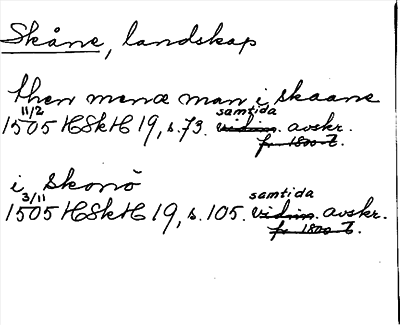 Skåne, landskap
then menæ man i skaane
11/2 samtida
1505 HSkH 19, s. 73. vidim. avskr.
fr. 1800-t.
i skonö
3/11 samtida
1505 HSkH 19, s. 105. vidim. avskr.
fr. 1800-t.